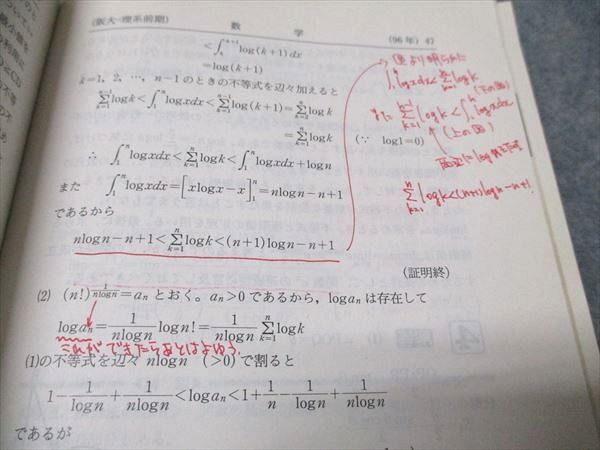 (阪大-理系前期) 数 学 (96年) 47
<∫ₖᵏ⁺¹log(k+1)dx
=log(k+1)
k=1, 2, …, n−1のときの不等式を辺々加えると
Σₖ₌₁ⁿ⁻¹logk<∫₁ⁿlogxdx<Σₖ₌₁ⁿ⁻¹log(k+1)=Σₖ₌₂ⁿlogk
=Σₖ₌₁ⁿlogk (∵ log1=0)
∴ ∫₁ⁿlogxdx<Σₖ₌₁ⁿlogk<∫₁ⁿlogxdx+logn
また ∫₁ⁿlogxdx=[xlogx−x]₁ⁿ=nlogn−n+1
であるから
nlogn−n+1<Σₖ₌₁ⁿlogk<(n+1)logn−n+1
(証明終)
(2) (n!)^(1/nlogn)=aₙとおく。aₙ>0であるから, logaₙは存在して
logaₙ=1/nlogn logn!=1/nlogn Σₖ₌₁ⁿlogk
これができたらあとはよゆう
(1)の不等式を辺々nlogn (>0)で割ると
1−1/logn+1/nlogn<logaₙ<1+1/n−1/logn+1/nlogn
であるが
図より明らかに
∫₁ⁿlogxdx<Σₖ₌₁ⁿlogk
(下の図)
Σₖ₌₁ⁿ⁻¹logk<∫₁ⁿlogxdx
(上の図)
Σₖ₌₁ⁿlogk<(n+1)logn−n+1